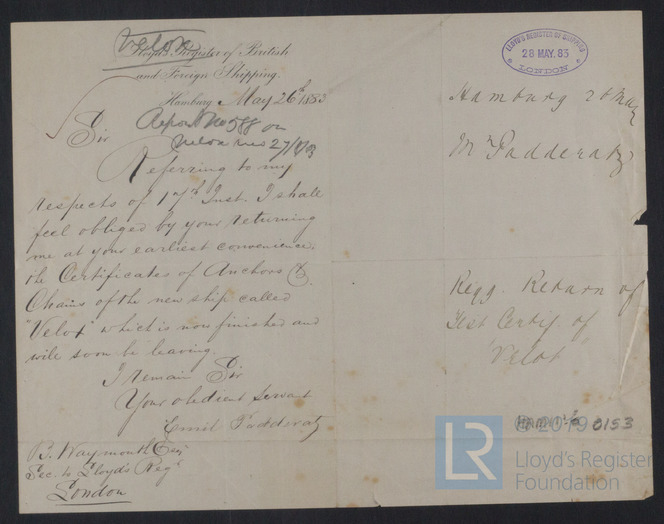 Velox
Lloyd's Register of British
and Foreign Shipping.
Hamburg May 26th 1883
Report No 588 on
Sir
Referring to my
respects of 17th Inst. I shall
feel obliged by your returning
me at your earliest convenience,
the Certificates of Anchors &
Chains of the new ship called
"Velox" which is now finished and
will soon be leaving.
I remain Sir
Your obedient servant
Emil Padderatz
B. Waymouth Esq
Sec. to Lloyd's Regr
London
LLOYD'S REGISTER OF SHIPPING
28 MAY. 83
LONDON
Hamburg 26 May
Mr Padderatz
Reqg. Return of
Test Certif. of
'Velox'
0153
© 2019
LR
Lloyd's Register
Foundation